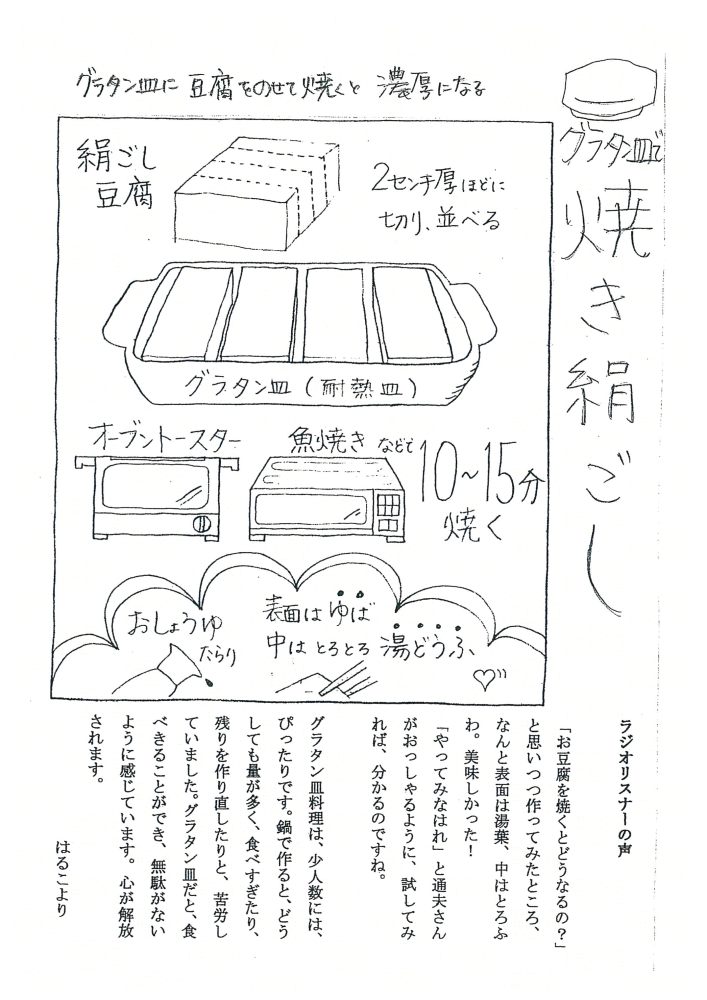 グラタン皿で
焼き絹ごし
グラタン皿に豆腐をのせて焼くと濃厚になる
絹ごし
豆腐
2センチ厚ほどに
切り、並べる
グラタン皿(耐熱皿)
オーブントースター
魚焼きなどで
10~15分
焼く
おしょうゆ
たらり
表面はゆば
中はとろとろ湯どうふ
ラジオリスナーの声
「お豆腐を焼くとどうなるの?」
と思いつつ作ってみたところ、
なんと表面は湯葉、中はとろふ
わ。美味しかった!
「やってみなはれ」と通夫さん
がおっしゃるように、試してみ
れば、分かるのですね。
グラタン皿料理は、少人数には、
ぴったりです。鍋で作ると、どう
しても量が多く、食べすぎたり、
残りを作り直したりと、苦労し
ていました。グラタン皿だと、食
べきることができ、無駄がない
ように感じています。心が解放
されます。
はるこより